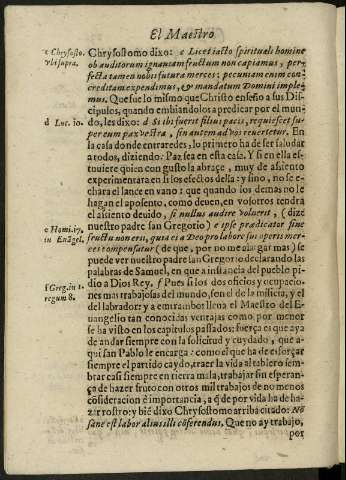 El Maestro
c Chrysosto.
vbi supra.
Chrysostomo dixo: c Licet iacto spirituali homine
ob auditorum ignauiam fructum non capiamus, per
fecta tamen nobis futura merces: pecuniam enim con
creditam expendimus, & mandatum Domini imple
mus. Que fue lo mismo que Christo enseño a sus Dis
cipulos, quando embiandolos a predicar por el mun
d Luc. 10.
do, les dixo: d Si ibi fuerit filius pacis, requiescet su
per eum pax vestra, sin autem ad vos reuertetur. En
la casa donde entraredes, lo primero ha de ser saludar
a todos, diziendo: Paz sea en esta casa. Y si en ella es-
tuuiere quien con gusto la abraçe, muy de assiento
experimentara en si los efectos della: y sino, no se e-
chara el lance en vano: que quando los demas no le
hagan el aposento, como deuen, en vosotros tendrá
el assiento deuido, si nullus audire voluerit, (dize
e Homi. 17.
in Euãgel.
nuestro padre san Gregorio) e ipse prædicator sine
fructu non erit, quia ei à Deo pro labore sui operis mer-
ces compensatur (de que, por no me alargar mas) se
puede ver nuestro padre san Gregorio declarando las
palabras de Samuel, en que a instancia del pueblo pi-
f Greg. in 1.
regum 8.
dio a Dios Rey. f Pues si los dos oficios y ocupacio-
nes mas trabajosas del mundo, son el de la milicia, y el
del labrador: y a entrambos lleua el Maestro del E-
uangelio tan conocidas ventajas como por menor
se ha visto en los capitulos passados: fuerça es que aya
de andar siempre con la solicitud y cuydado, que a-
qui san Pablo le encarga: como el que ha de esforçar
siempre el partido caydo, traer la vida al tablero sem-
brar casi siempre en tierra mala, trabajar sin esperan-
ça de hazer fruto con otros mil trabajos de no menos
cõsideracion é importancia, a q̃ de por vida ha de ha-
zar rostro: y biẽ dixo Chrysostomo arriba citado: Nõ
sane est labor alius illi cõferendus. Que no ay trabajo,
por